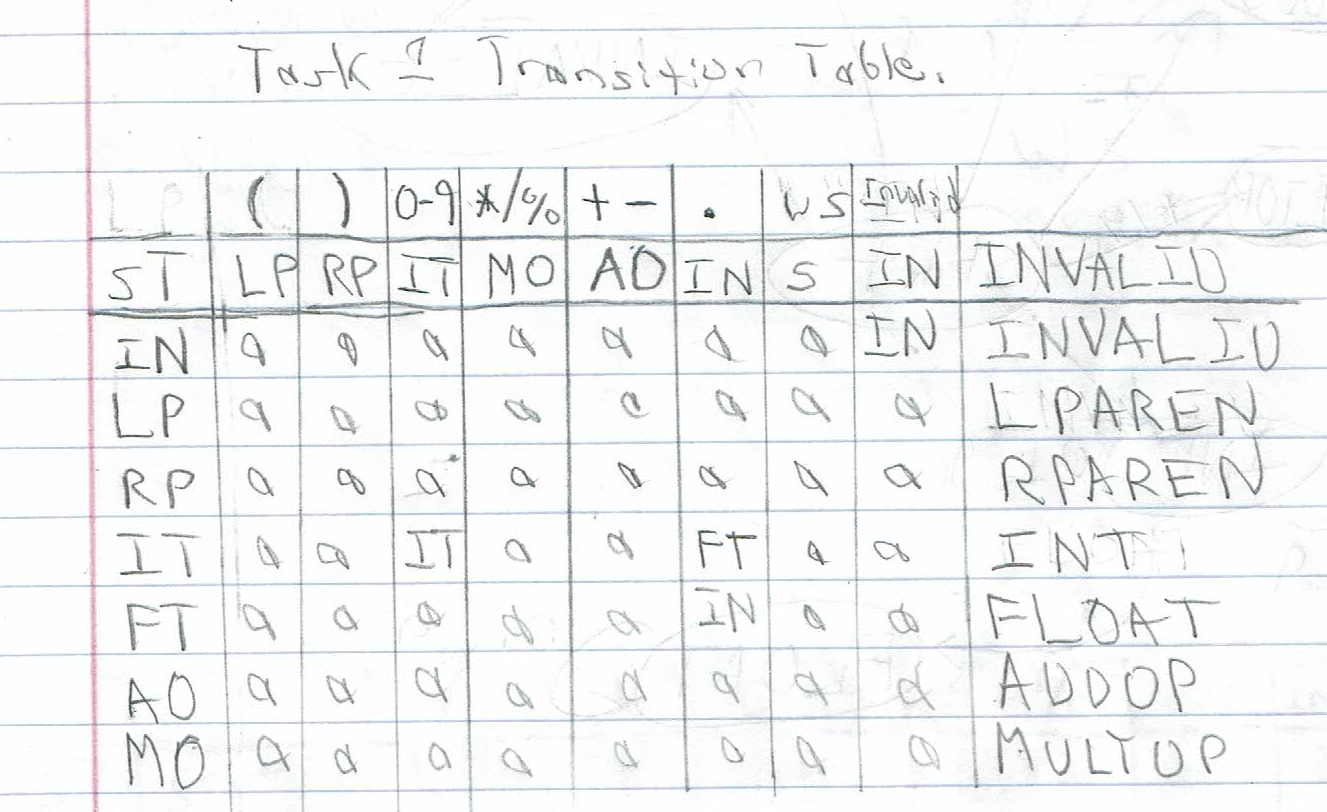 Task 1 Transition Table.
LP ( ) 0-9 */% + - . WS Invalid
ST LP RP IT MO AO IN S IN INVALID
IN a a a a a a a IN INVALID
LP a a a a a a a a LPAREN
RP a a a a a a a a RPAREN
IT a a IT a a FT a a INT
FT a a a a a IN a a FLOAT
AO a a a a a a a a ADDOP
MO a a a a a a a a MULTOP